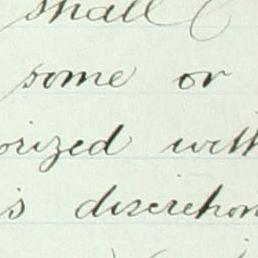 shall
some or
orized with
is discretion